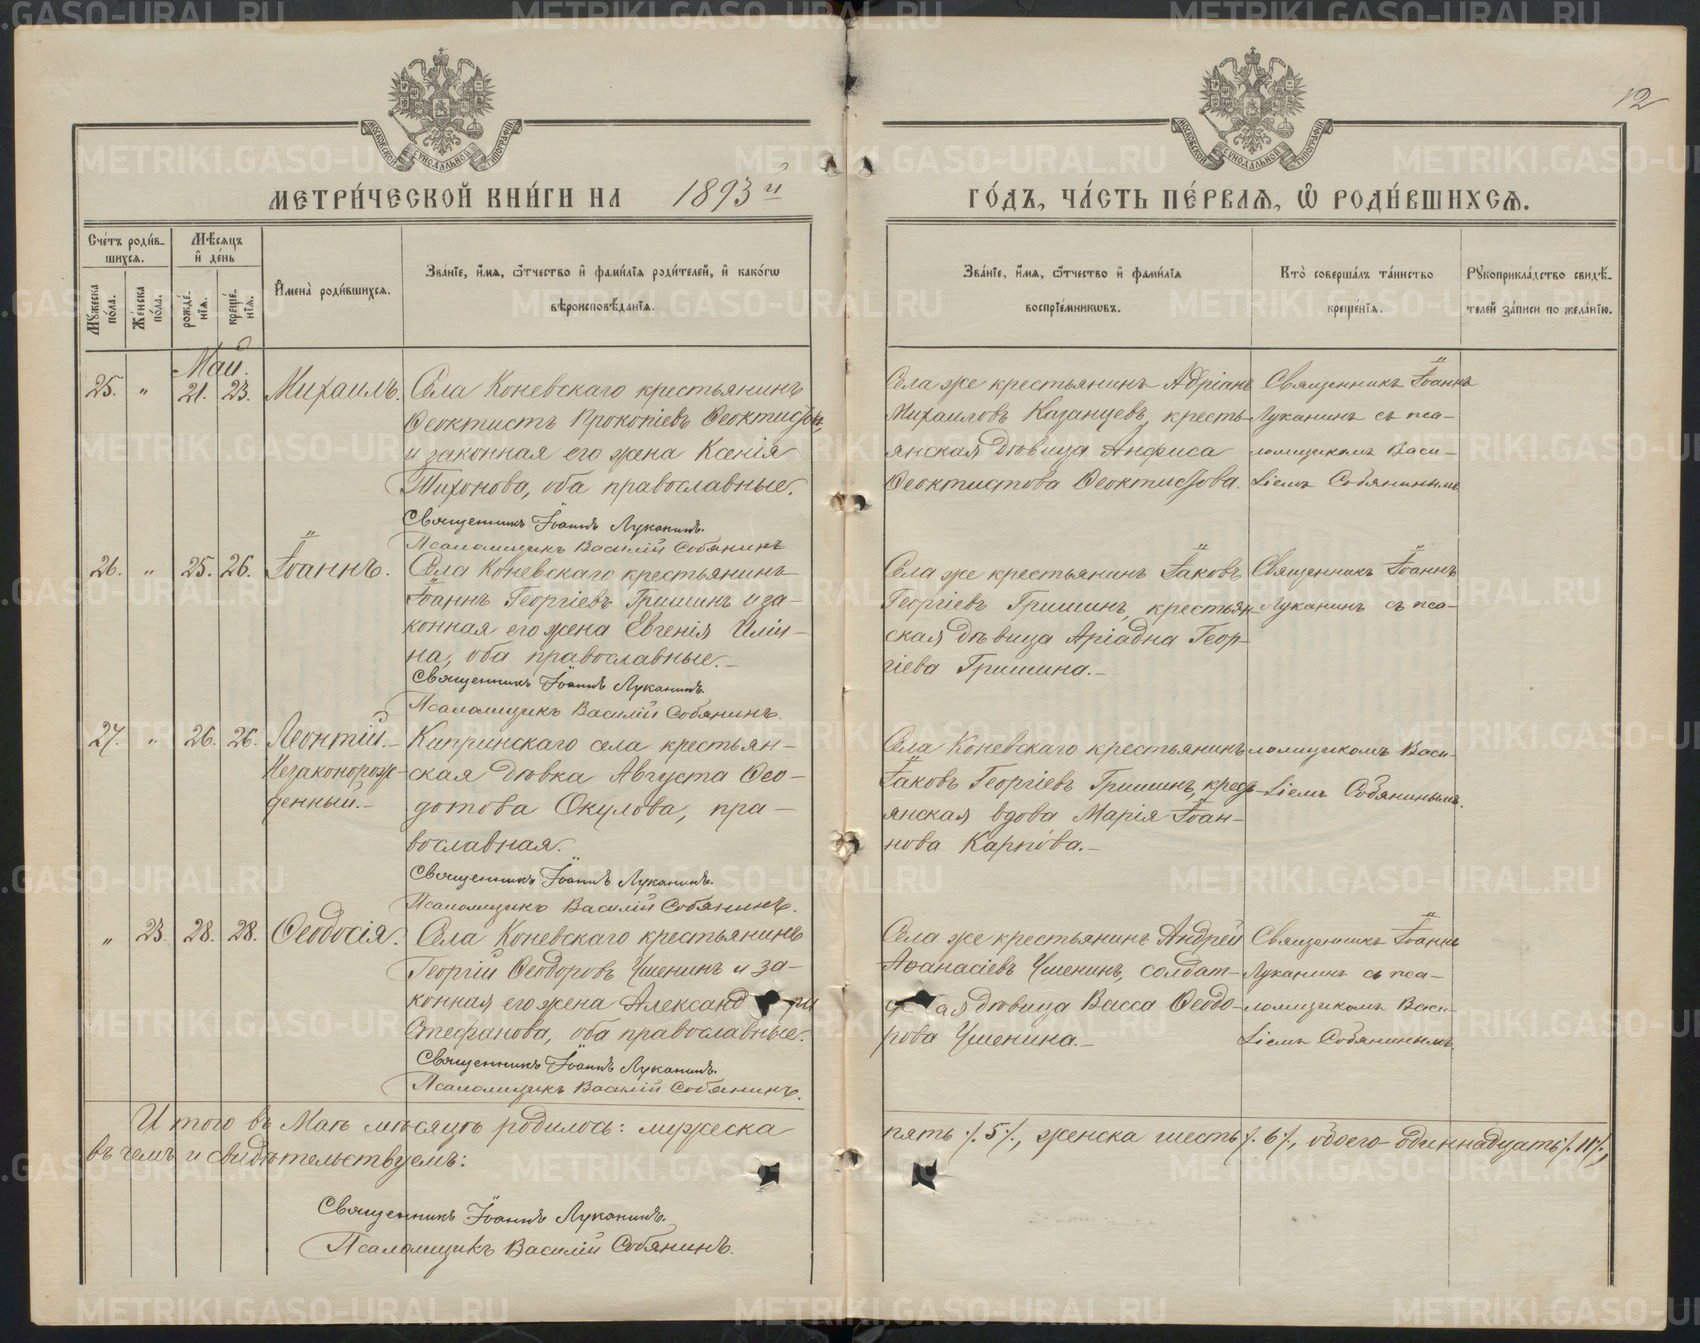 12
МЕТРИ́ЧЕСКОЙ КНИ́ГИ НА 1893й
ГО́ДЪ, ЧА́СТЬ ПЕ́РВАѦ, Ѡ РОДИ́ВШИХСѦ.
Сче́тъ роди́в-
шихсѧ.
Мꙋ́жеска по́ла.
Же́нска по́ла.
Мѣ́сѧцъ
и҆ де́нь
рожде́-
нїѧ.
креще́-
нїѧ.
И҆мена̀ роди́вшихсѧ.
Зва́нїе, и҆́мѧ, ѻ҆́тчество и҆ фами́лїѧ роди́телей, и҆ како́гѡ
вѣроисповѣ́данїѧ.
Зва́нїе, и҆́мѧ, ѻ҆́тчество и҆ фами́лїѧ
воспрїе́мникѡвъ.
Кто̀ соверша́лъ та́инство
креще́нїѧ.
Рꙋкоприкла́дство свидѣ́-
телей за́писи по жела́нїю.
Май.
25. " 21. 23. Михаилъ.
Села Коневскаго крестьянинъ
Ѳеоктистъ Прокопіевъ Ѳеоктистовъ
и законная его жена Ксенія
Тихонова, оба православные.
Священникъ Іоаннъ Луканинъ.
Псаломщикъ Василій Собянинъ
Села же крестьянинъ Адріанъ
Михаиловъ Казанцевъ, кресть-
янская дѣвица Анфиса
Ѳеоктистова Ѳеоктистова.
Священникъ Іоаннъ
Луканинъ съ пса-
ломщикомъ Васи-
ліемъ Собянинымъ
26. " 25. 26. Іоаннъ.
Села Коневскаго крестьянинъ
Іоаннъ Георгіевъ Гришинъ и за-
конная его жена Евгенія Иліи-
на, оба православные.-
Священникъ Іоаннъ Луканинъ.
Псаломщикъ Василій Собянинъ.
Села же крестьянинъ Іаковъ
Георгіевъ Гришинъ, крестьян-
ская дѣвица Аріадна Геор-
гіева Гришина.-
Священникъ Іоаннъ
Луканинъ съ пса-
27. " 26. 26. Леонтій.-
Незаконорож-
денный.-
Кипринскаго села крестьян-
ская дѣвка Августа Ѳео-
дотова Окулова, пра-
вославная.
Священникъ Іоаннъ Луканинъ.
Псаломщикъ Василій Собянинъ.
Села Коневскаго крестьянинъ
Іаковъ Георгіевъ Гришинъ, кресть-
янская вдова Марія Іоан-
нова Карпова.-
ломщикомъ Васи-
ліемъ Собянинымъ.
" 23. 28. 28. Ѳеодосія.
Села Коневскаго крестьянинъ
Георгій Ѳеодоровъ Ушенинъ и за-
конная его жена Александ ри
Стефанова, оба православные.
Священникъ Іоаннъ Луканинъ.
Псаломщикъ Василій Собянинъ.
Села же крестьянинъ Андрей
Аѳанасіевъ Ушенинъ, солдат-
с ая дѣвица Васса Ѳеодо-
рова Ушенина.-
Священникъ Іоаннъ
Луканинъ съ пса-
ломщикомъ Васи-
ліемъ Собянинымъ.
Итого въ Маѣ мѣсяцѣ родилось: мужеска
пять /.5/., женска шесть /.6/., обоего одиннадцать /.11/.,
въ чемъ и свидѣтельствуемъ:
Священникъ Іоаннъ Луканинъ.
Псаломщикъ Василій Собянинъ.